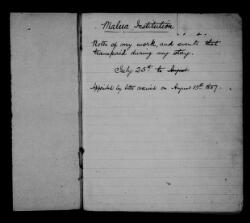 Malua Institution.
Notes of my work, and events that
transpired during my stay.
July 25th to August
Appointed by letter received on August 13th 1887.